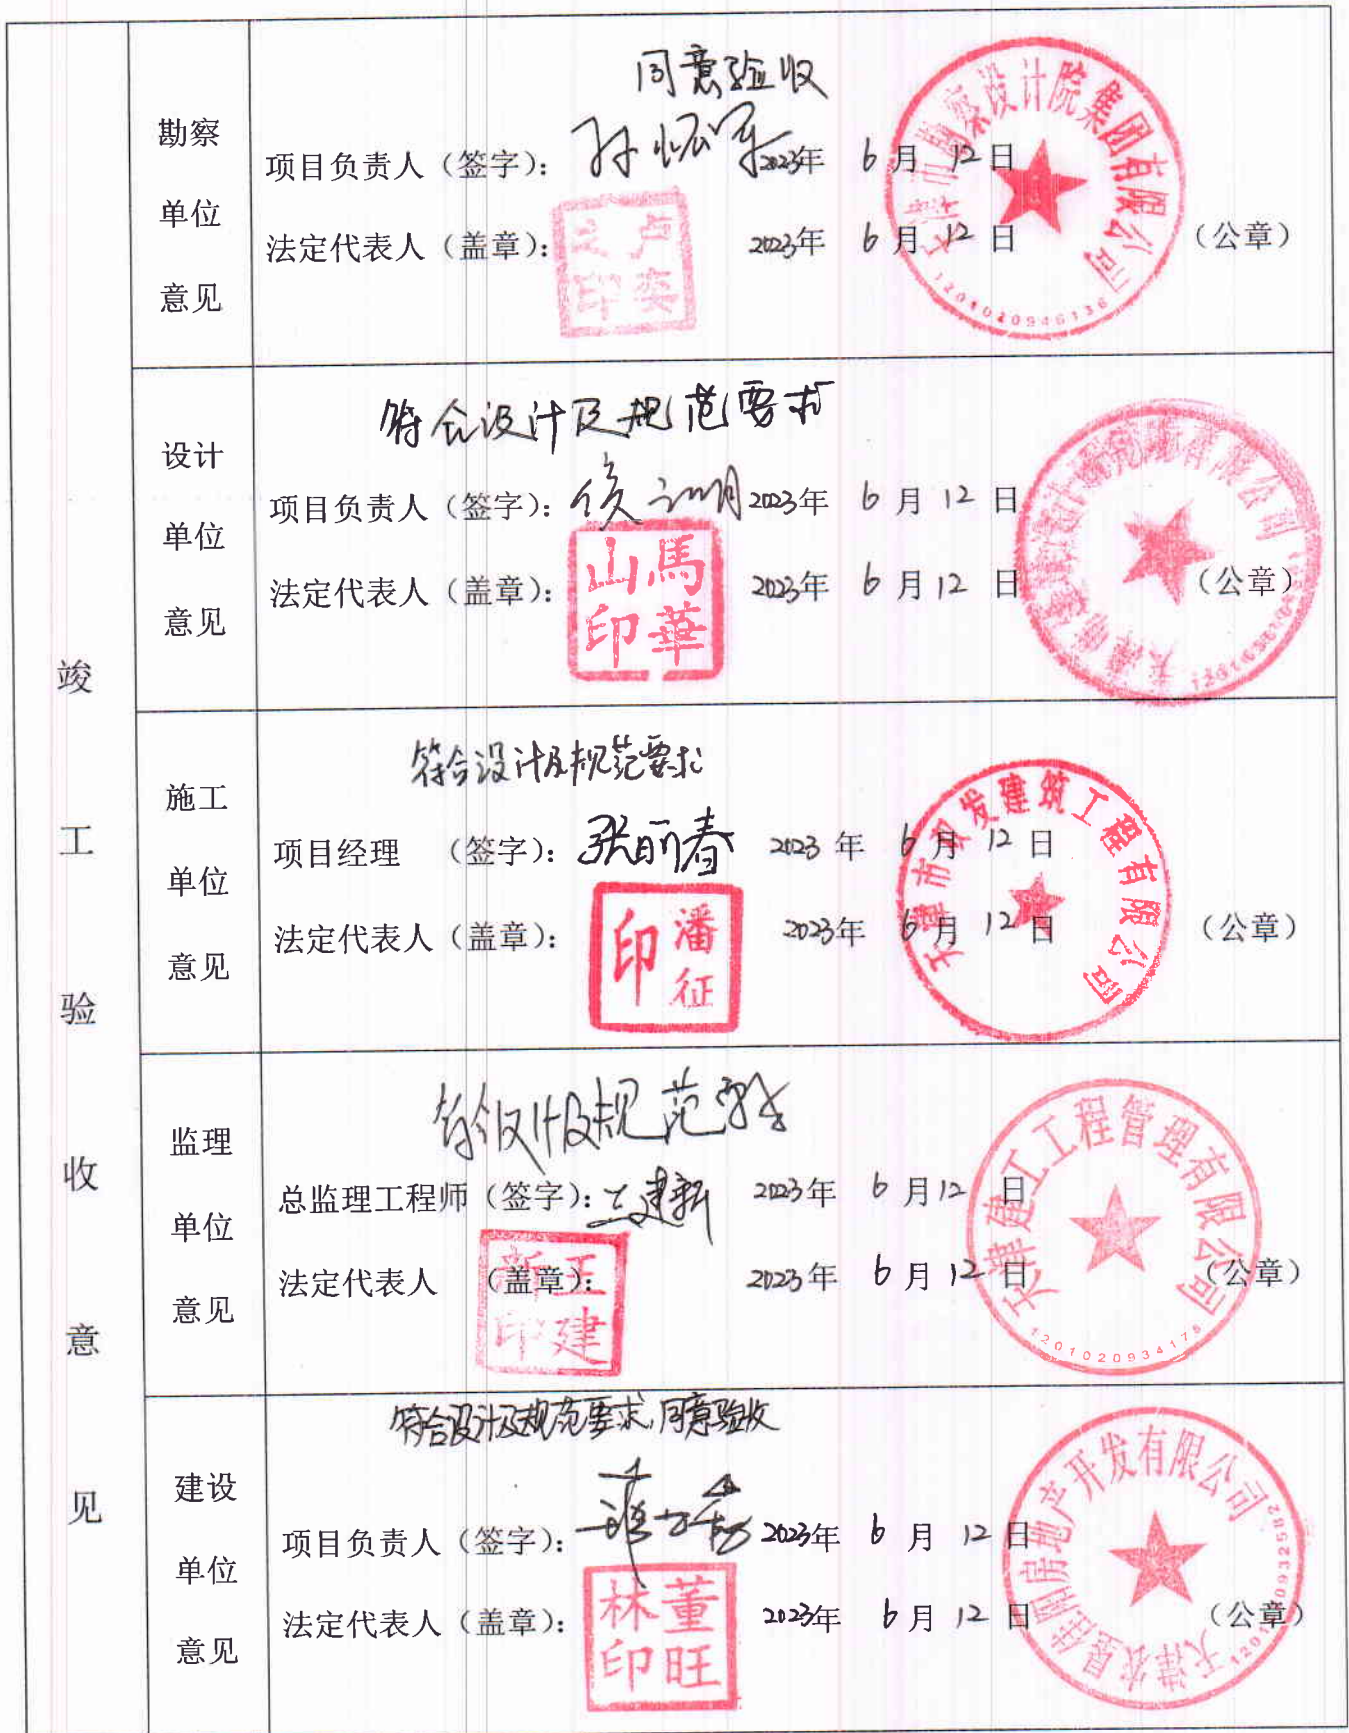 竣工验收意见
勘察单位意见
同意验收
项目负责人（签字）： 孙怀军 2023年 6月 12日
法定代表人（盖章）： 2023年 6月 12日 （公章）
卢奕之印
天津市勘察设计院集团有限公司
1201020946136
设计单位意见
符合设计及规范要求
项目负责人（签字）： 2023年 6月 12日
法定代表人（盖章）： 2023年 6月 12日 （公章）
馬華山印
施工单位意见
符合设计及规范要求
项目经理 （签字）： 张丽春 2023年 6月 12日
法定代表人（盖章）： 2023年 6月 12日 （公章）
潘征印
发建筑工程有限公司
监理单位意见
符合设计及规范要求
总监理工程师（签字）： 王建新 2023年 6月 12日
法定代表人 （盖章）： 2023年 6月 12日 （公章）
王建新印
天津建工工程管理有限公司
1201020934175
建设单位意见
符合设计及规范要求，同意验收
项目负责人（签字）： 2023年 6月 12日
法定代表人（盖章）： 2023年 6月 12日 （公章）
董旺林印
房地产开发有限公司